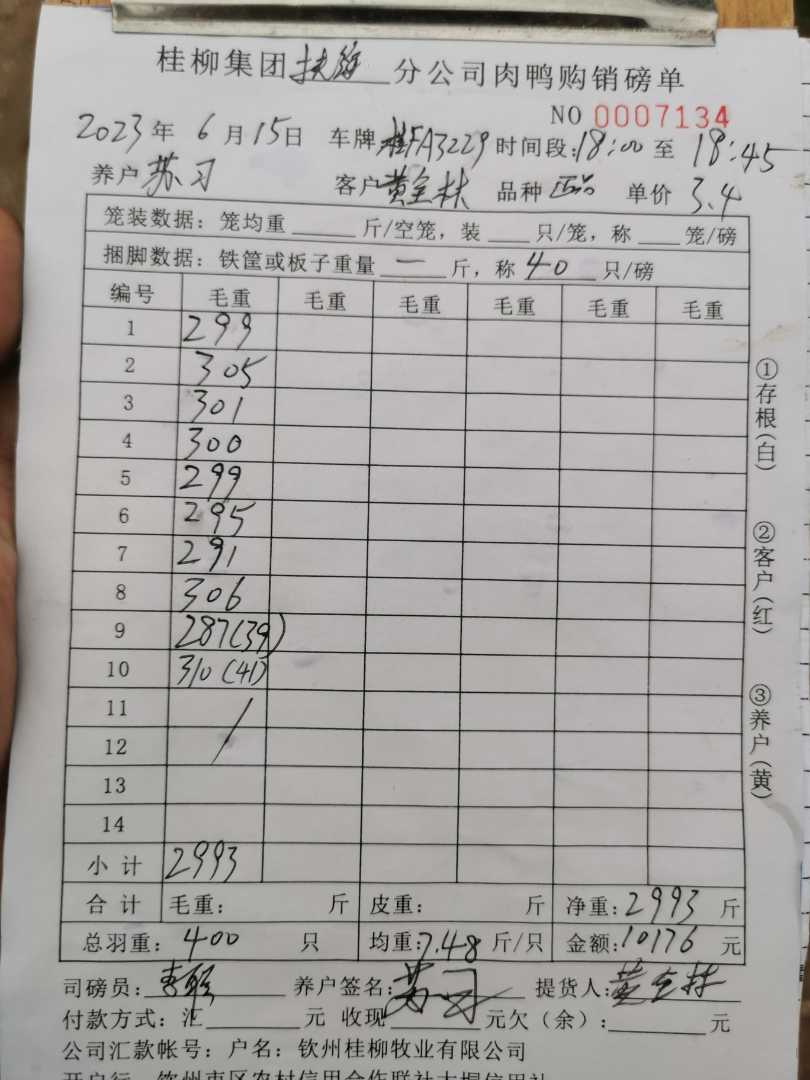 桂柳集团扶绥分公司肉鸭购销磅单
NO 0007134
2023年6月15日 车牌桂FA3229 时间段:18:00至18:45
养户苏习 客户黄全林 品种正品 单价3.4
笼装数据：笼均重 斤/空笼，装 只/笼，称 笼/磅
捆脚数据：铁筐或板子重量 一 斤，称 40 只/磅
编号 毛重 毛重 毛重 毛重 毛重 毛重
1 299
2 305
3 301
4 300
5 299
6 295
7 291
8 306
9 287(39)
10 310(41)
11 /
12
13
14
小计 2993
合计 毛重： 斤 皮重： 斤 净重：2993 斤
总羽重：400 只 均重：7.48斤/只 金额：10176 元
司磅员： 养户签名：苏习 提货人：黄全林
付款方式：汇 元 收现 元欠（余）： 元
公司汇款帐号：户名：钦州桂柳牧业有限公司
开户行 钦州市区农村信用合作联社大垌信用社
①存根(白)
②客户(红)
③养户(黄)